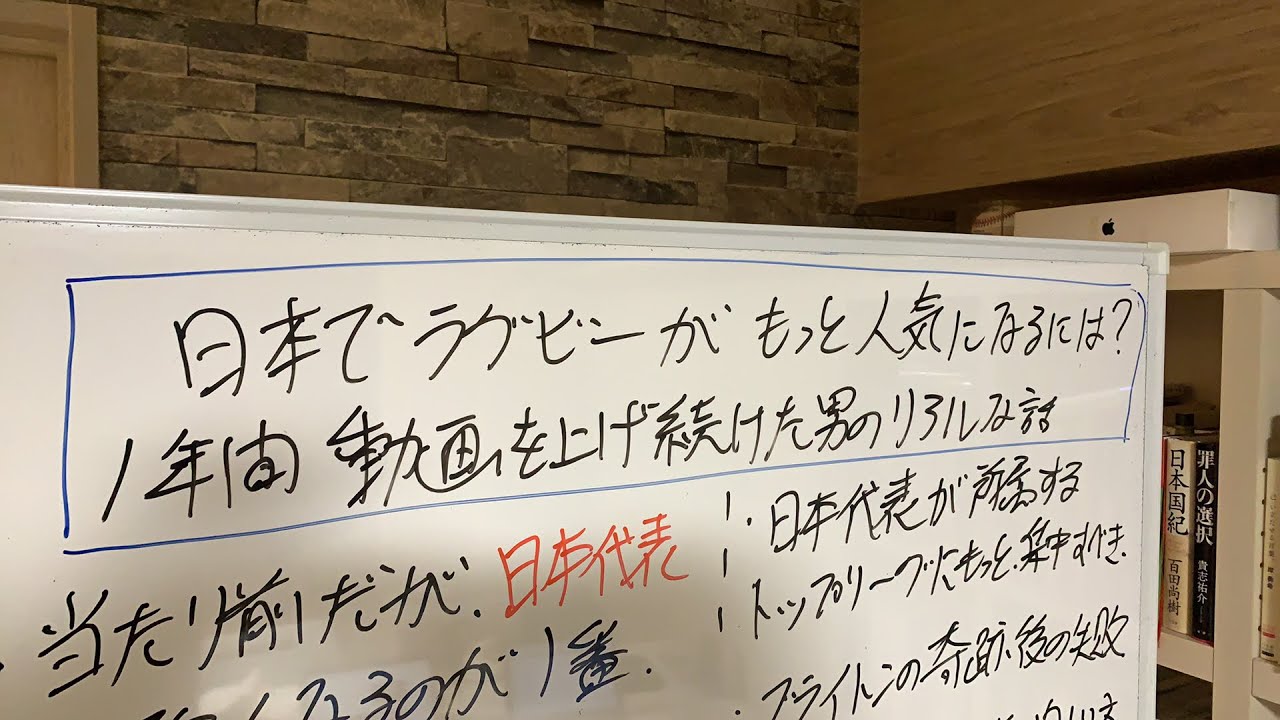 日本でラグビーがもっと人気になるには?
1年間動画を上げ続けた男のリアルな話
当たり前だが、日本代表
なるのが1番.
・日本代表が所属する
トップリーグにもっと集中すべき.
・ブライトンの奇跡後の失敗
日本国紀
百田尚樹
罪人の選択
貴志祐介